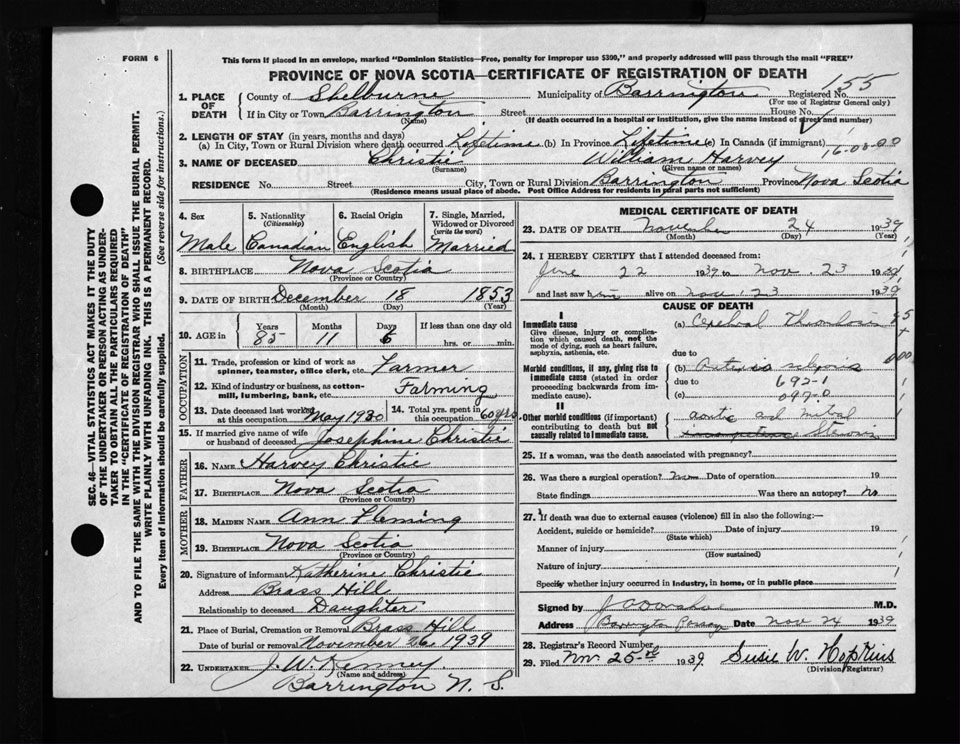 FORM 6
This form if placed in an envelope, marked "Dominion Statistics—Free, penalty for improper use $300," and properly addressed will pass through the mail "FREE"
PROVINCE OF NOVA SCOTIA—CERTIFICATE OF REGISTRATION OF DEATH
155
1. PLACE OF DEATH
County of Shelburne Municipality of Barrington Registered No.
(For use of Registrar General only)
If in City or Town Barrington Street House No.
(Name) (If death occurred in a hospital or institution, give the name instead of street and number)
2. LENGTH OF STAY (in years, months and days)
(a) In City, Town or Rural Division where death occurred Lifetime (b) In Province Lifetime (c) In Canada (if immigrant)
3. NAME OF DECEASED Christie William Harvey
(Surname) (Given name or names)
RESIDENCE No. Street City, Town or Rural Division Barrington Province Nova Scotia
(Residence means usual place of abode. Post Office Address for residents in rural parts not sufficient)
4. Sex Male
5. Nationality (Citizenship) Canadian
6. Racial Origin English
7. Single, Married, Widowed or Divorced (write the word) Married
8. BIRTHPLACE Nova Scotia
(Province or Country)
9. DATE OF BIRTH December 18 1853
(Month) (Day) (Year)
10. AGE in Years Months Days If less than one day old
85 11 6 hrs. or min.
OCCUPATION
11. Trade, profession or kind of work as spinner, teamster, office clerk, etc. Farmer
12. Kind of industry or business, as cotton-mill, lumbering, bank, etc. Farming
13. Date deceased last worked at this occupation May 1930
14. Total yrs. spent in this occupation 60 yrs
15. If married give name of wife or husband of deceased Josephine Christie
FATHER
16. NAME Harvey Christie
17. BIRTHPLACE Nova Scotia
(Province or Country)
MOTHER
18. MAIDEN NAME Ann Fleming
19. BIRTHPLACE Nova Scotia
(Province or Country)
20. Signature of informant Katherine Christie
Address Brass Hill
Relationship to deceased Daughter
21. Place of Burial, Cremation or Removal Brass Hill
Date of burial or removal November 26 1939
22. UNDERTAKER J. W. Kenney
(Name and address)
Barrington N. S.
MEDICAL CERTIFICATE OF DEATH
23. DATE OF DEATH November 24 1939
(Month) (Day) (Year)
24. I HEREBY CERTIFY that I attended deceased from:
June 22 1939 to Nov. 23 1939
and last saw him alive on Nov. 23 1939
CAUSE OF DEATH
I
Immediate cause
Give disease, injury or complication which caused death, not the mode of dying, such as heart failure, asphyxia, asthenia, etc.
(a) Cerebral Thrombosis
due to
Morbid conditions, if any, giving rise to immediate cause (stated in order proceeding backwards from immediate cause).
(b)
due to 692-1
(c) 092-0
II
Other morbid conditions (if important) contributing to death but not causally related to immediate cause.
aortic and mitral
Stenosis
25. If a woman, was the death associated with pregnancy?
26. Was there a surgical operation? no Date of operation 19
State findings Was there an autopsy? no
27. If death was due to external causes (violence) fill in also the following:—
Accident, suicide or homicide? Date of injury 19
(State which)
Manner of injury
(How sustained)
Nature of injury
Specify whether injury occurred in industry, in home, or in public place
Signed by M.D.
Address Barrington Passage Date Nov 24 1939
28. Registrar's Record Number
29. Filed Nov. 25th 1939 Susie W. Hopkins
(Division Registrar)
SEC. 46—VITAL STATISTICS ACT MAKES IT THE DUTY
OF THE UNDERTAKER OR PERSON ACTING AS UNDER-
TAKER TO OBTAIN ALL THE PARTICULARS REQUIRED
IN THE "CERTIFICATE OF REGISTRATION OF DEATH"
AND TO FILE THE SAME WITH THE DIVISION REGISTRAR WHO SHALL ISSUE THE BURIAL PERMIT.
WRITE PLAINLY WITH UNFADING INK. THIS IS A PERMANENT RECORD.
Every item of information should be carefully supplied. (See reverse side for instructions.)